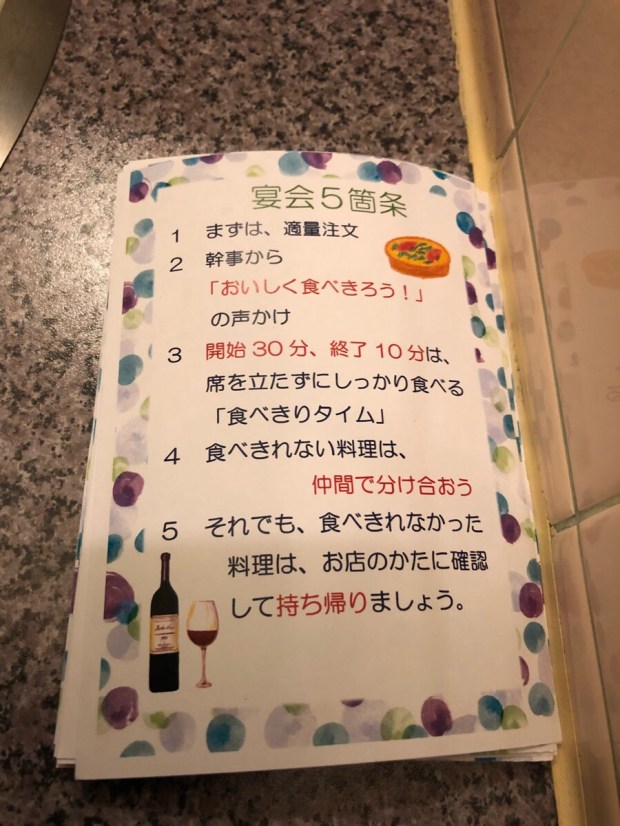 宴会5箇条
1 まずは、適量注文
2 幹事から
「おいしく食べきろう！」
の声かけ
3 開始30分、終了10分は、
席を立たずにしっかり食べる
「食べきりタイム」
4 食べきれない料理は、
仲間で分け合おう
5 それでも、食べきれなかった
料理は、お店のかたに確認
して持ち帰りましょう。